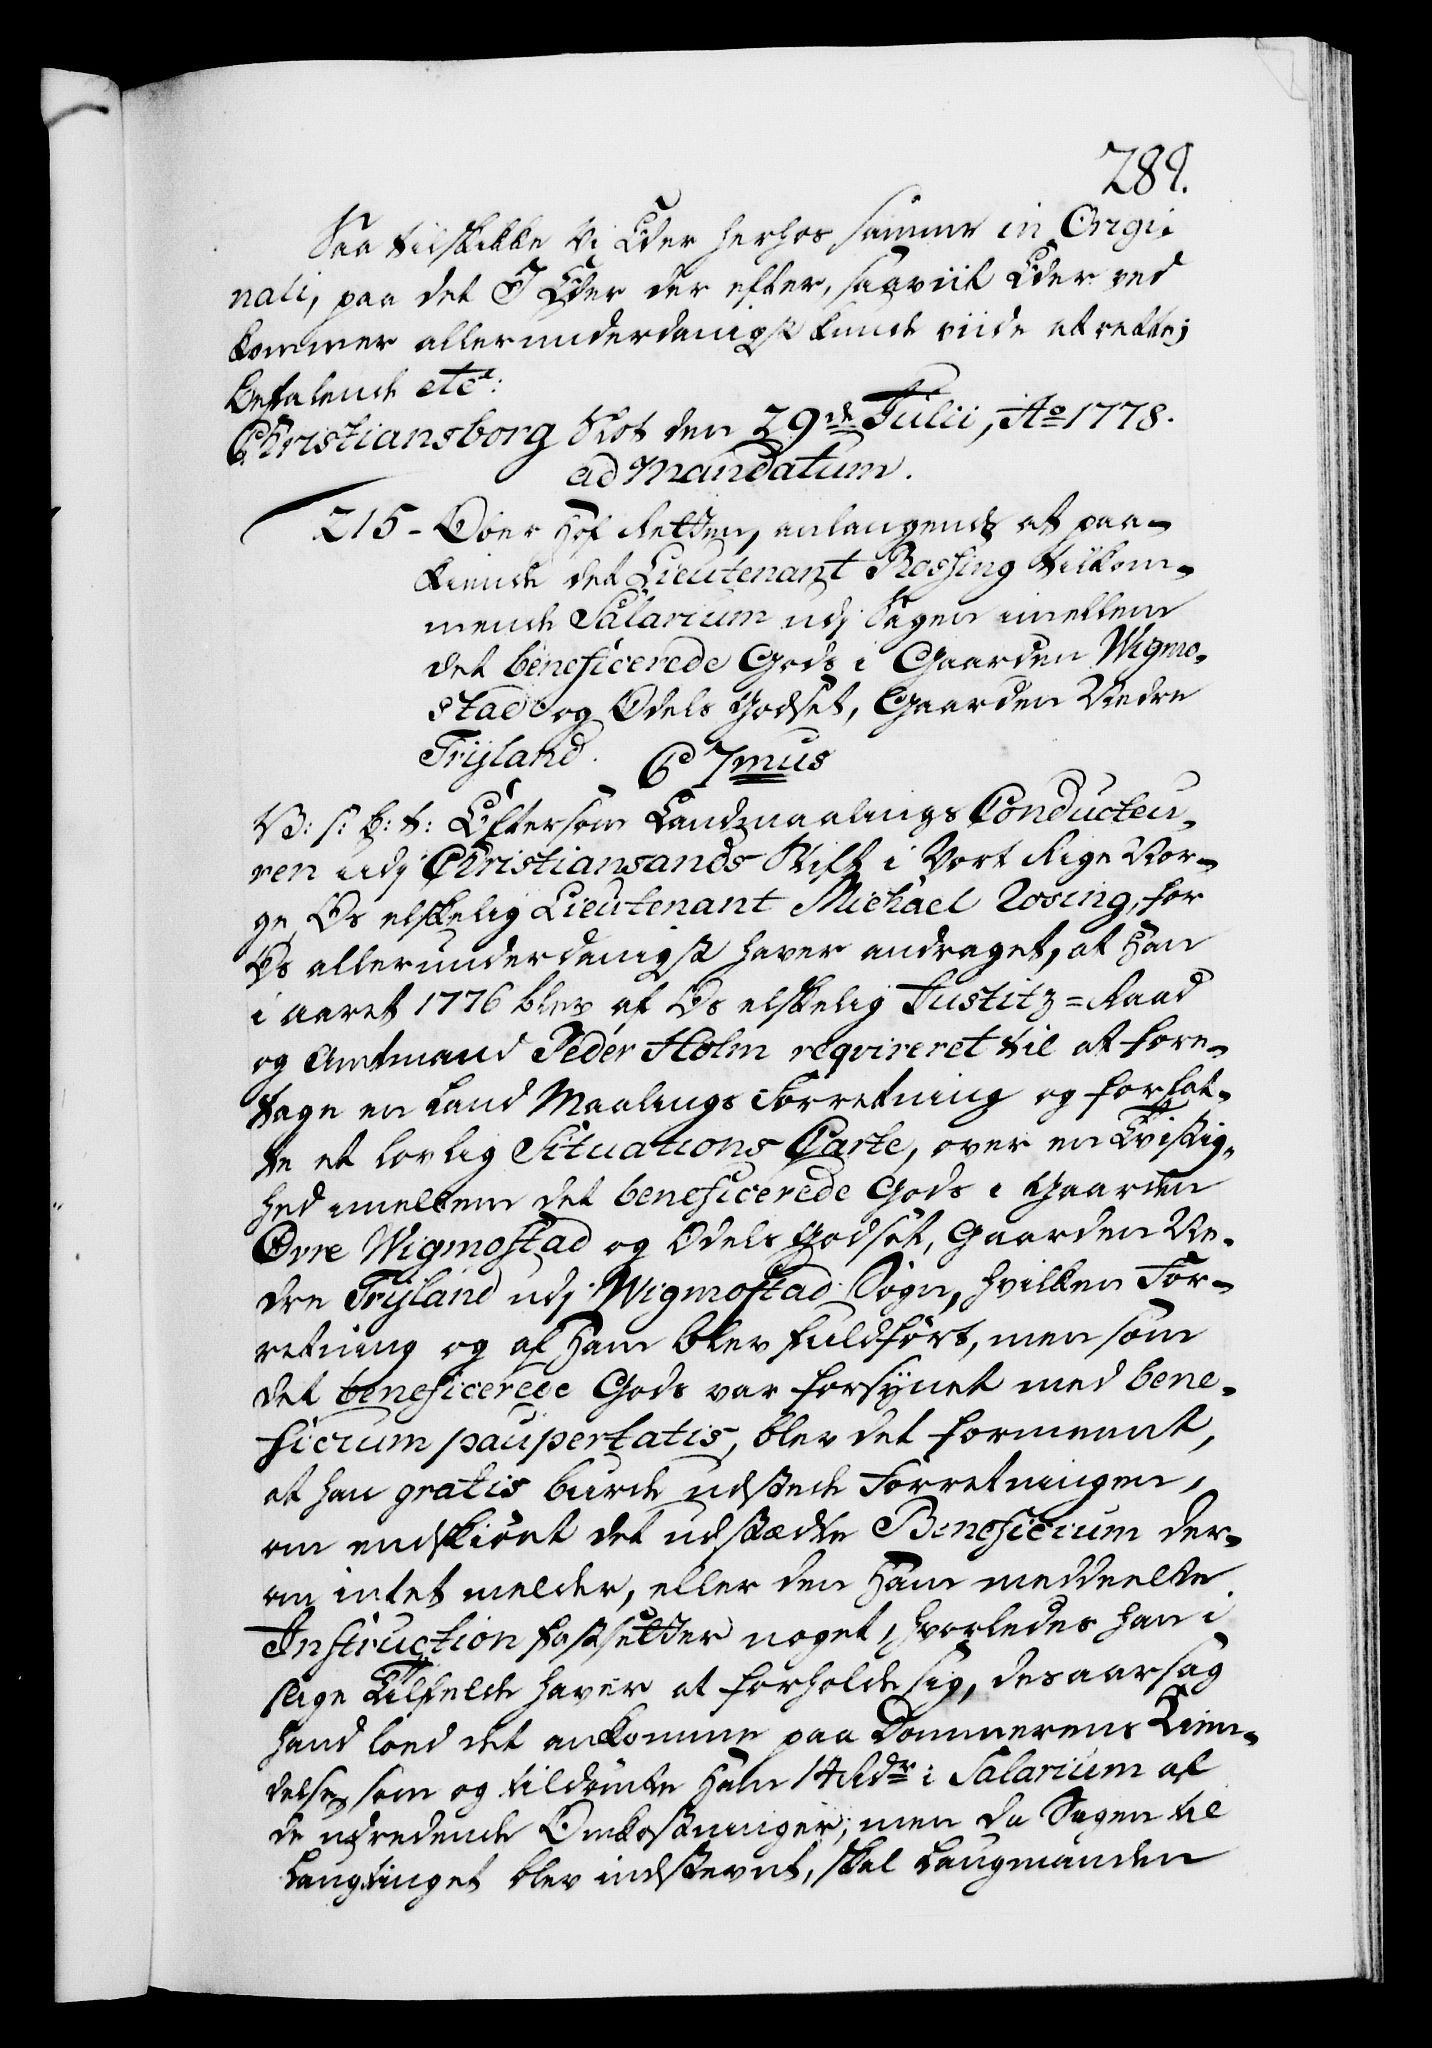 289.
Saa tilskikke Vi Eder herhos samme in Origi-
nali, paa det I Eder der efter, saaviit Eder ved
kommer allerunderdanigst kunde viide at rette;
Befalende etc:
Christiansborg Slot den 29de Julii, Ao 1778.
ad Mandatum.
215 - Over Hof Retten, anlangende at paa-
kiende det Lieutenant Rossing tilkom-
mende Salarium udj Sagen imellem
det beneficerede Gods i Gaarden Wigmo-
stad og Odels Godset, Gaarden Nedre
Trÿland. C 7mus
V: s: G: t: Eftersom Landmaalings Conducteu-
ren udj Christiansands Stift i Vort Rige Nor-
ge, Os elskelig Lieutenant Michael Rosing, for
Os allerunderdanigst haver andraget, at Han
i aaret 1776 blev af Os elskelig Justitz=Raad
og Amtmand Peder Holm reqvireret til at fore-
tage en Land Maalings Forretning og forfat-
te et lovlig Situations Carte, over en Tvistig-
hed imellem det beneficerede Gods i Gaarden
Øvre Wigmostad og Odels Godset, Gaarden Ne-
dre Trÿland udj Wigmostad Sogn, hvilken For-
retning og af Ham blev fuldført, men som
det beneficerede Gods var forsÿnet med bene-
ficium paupertatis, blev det formeent,
at han gratis burde udstede Forretningen,
om endskiønt det udstædte Beneficium der-
om intet melder, eller den Ham meddeelte
Instruction fastsetter noget, hvorledes han i
slige Tilfelde haver at forholde sig, desaarsag
hand lod det ankomme paa Dommerens Kien-
delse, som og tildømte Ham 14 Rdr i Salarium af
de udredende Omkostninger; men da Sagen til
Laugtinget blev indstevnt, skal Laugmanden